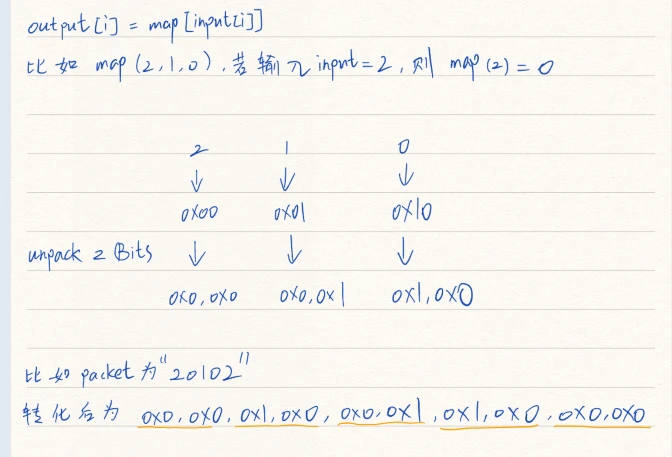 output[i] = map[input[i]]
比如 map(2,1,0),若输入input=2,则 map(2)=0
2 1 0
↓ ↓ ↓
0x00 0x01 0x10
unpack 2 Bits ↓ ↓ ↓
0x0,0x0 0x0,0x1 0x1,0x0
比如 packet 为"20102"
转化后为 0x0,0x0,0x1,0x0,0x0,0x1,0x1,0x0,0x0,0x0